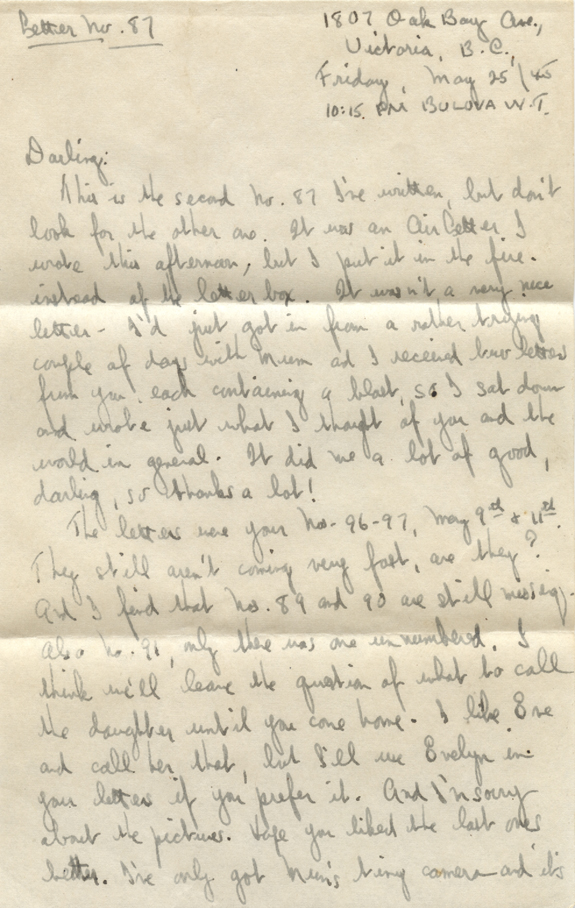 Letter No. 87
1807 Oak Bay Ave.,
Victoria, B.C.,
Friday, May 25/45
10:15 PM BULOVA W.T.
Darling:
This is the second No. 87 I've written, but don't
look for the other one. It was an Air Letter I
wrote this afternoon, but I put it in the fire.
instead of the letter box. It wasn't a very nice
letter - I'd just got in from a rather trying
couple of days with Mum and I received two letters
from you each containing a blast, so I sat down
and wrote just what I thought of you and the
world in general. It did me a lot of good,
darling, so thanks a lot!
The letters were your Nos. 96-97, May 9th & 11th.
They still aren't coming very fast, are they?
And I find that Nos. 89 and 90 are still missing.
Also No. 91, only there was one unnumbered. I
think we'll leave the question of what to call
the daughter until you come home. I like Eve
and call her that, but I'll use Evelyn in
your letters if you prefer it. And I'm sorry
about the pictures. Hope you liked the last ones
better. I've only got Mum's tiny camera and it's